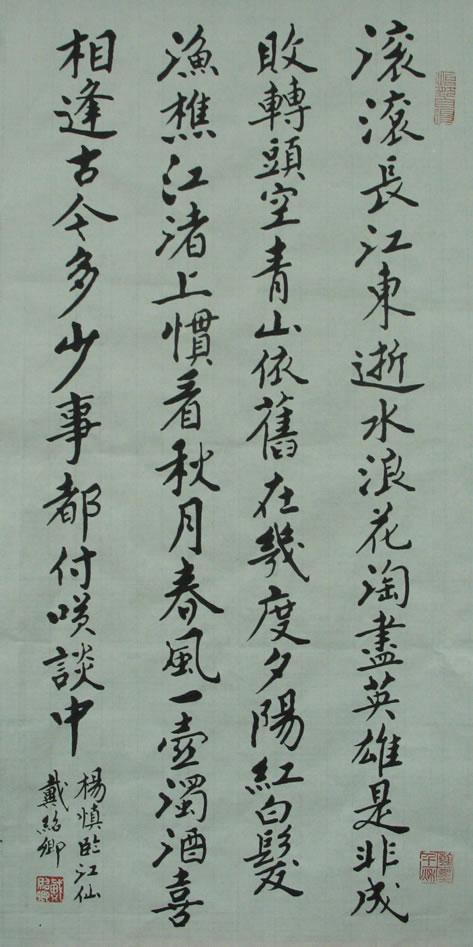 滚滚長江東逝水浪花淘盡英雄是非成
敗轉頭空青山依舊在幾度夕陽紅白髮
漁樵江渚上慣看秋月春風一壺濁酒喜
相逢古今多少事都付咲談中
楊慎臨江仙
戴紹卿